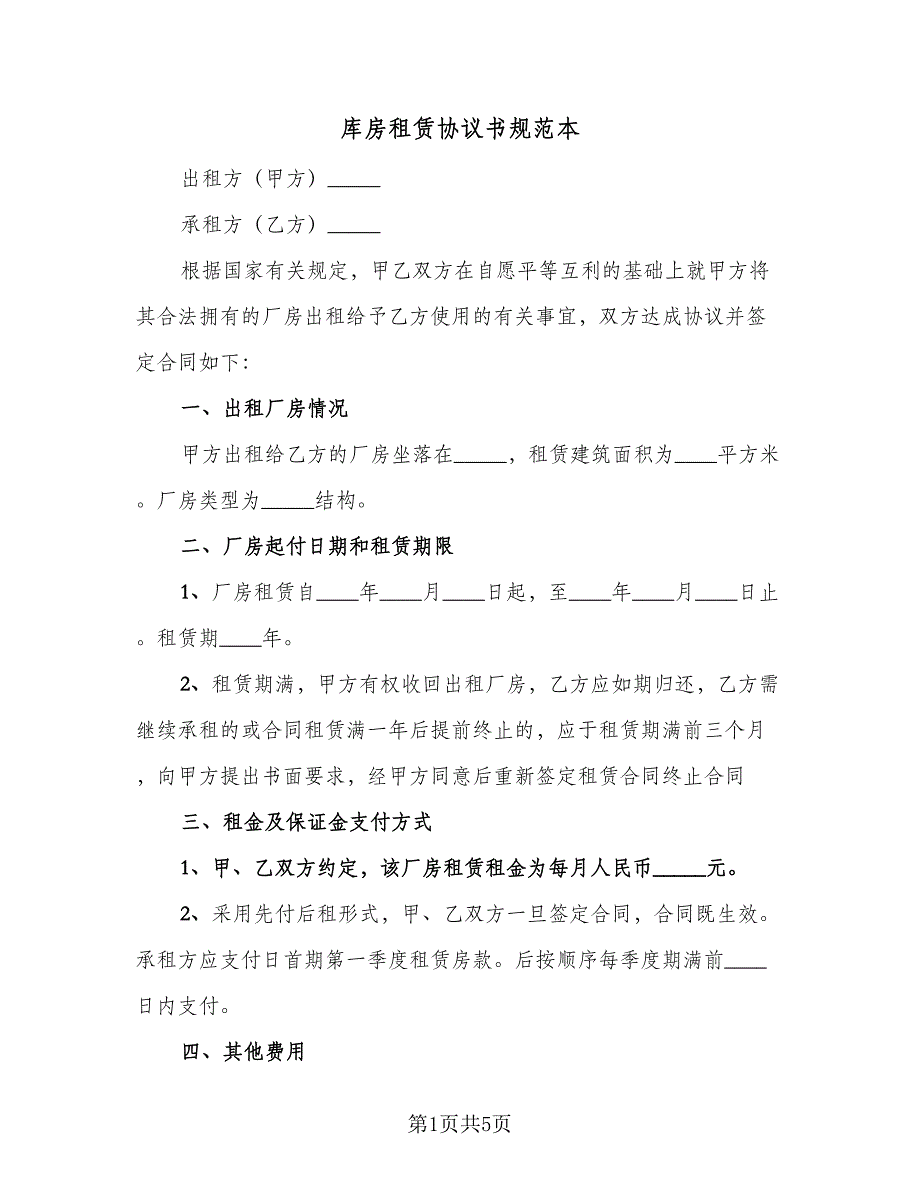 库房租赁协议书规范本
出租方（甲方）_____
承租方（乙方）_____
根据国家有关规定，甲乙双方在自愿平等互利的基础上就甲方将
其合法拥有的厂房出租给予乙方使用的有关事宜，双方达成协议并签
定合同如下：
一、出租厂房情况
甲方出租给乙方的厂房坐落在_____，租赁建筑面积为____平方米
。厂房类型为_____结构。
二、厂房起付日期和租赁期限
1、厂房租赁自____年____月____日起，至____年____月____日止
。租赁期____年。
2、租赁期满，甲方有权收回出租厂房，乙方应如期归还，乙方需
继续承租的或合同租赁满一年后提前终止的，应于租赁期满前三个月
，向甲方提出书面要求，经甲方同意后重新签定租赁合同终止合同
三、租金及保证金支付方式
1、甲、乙双方约定，该厂房租赁租金为每月人民币_____元。
2、采用先付后租形式，甲、乙双方一旦签定合同，合同既生效。
承租方应支付日首期第一季度租赁房款。后按顺序每季度期满前____
日内支付。
四、其他费用
第1页共5页